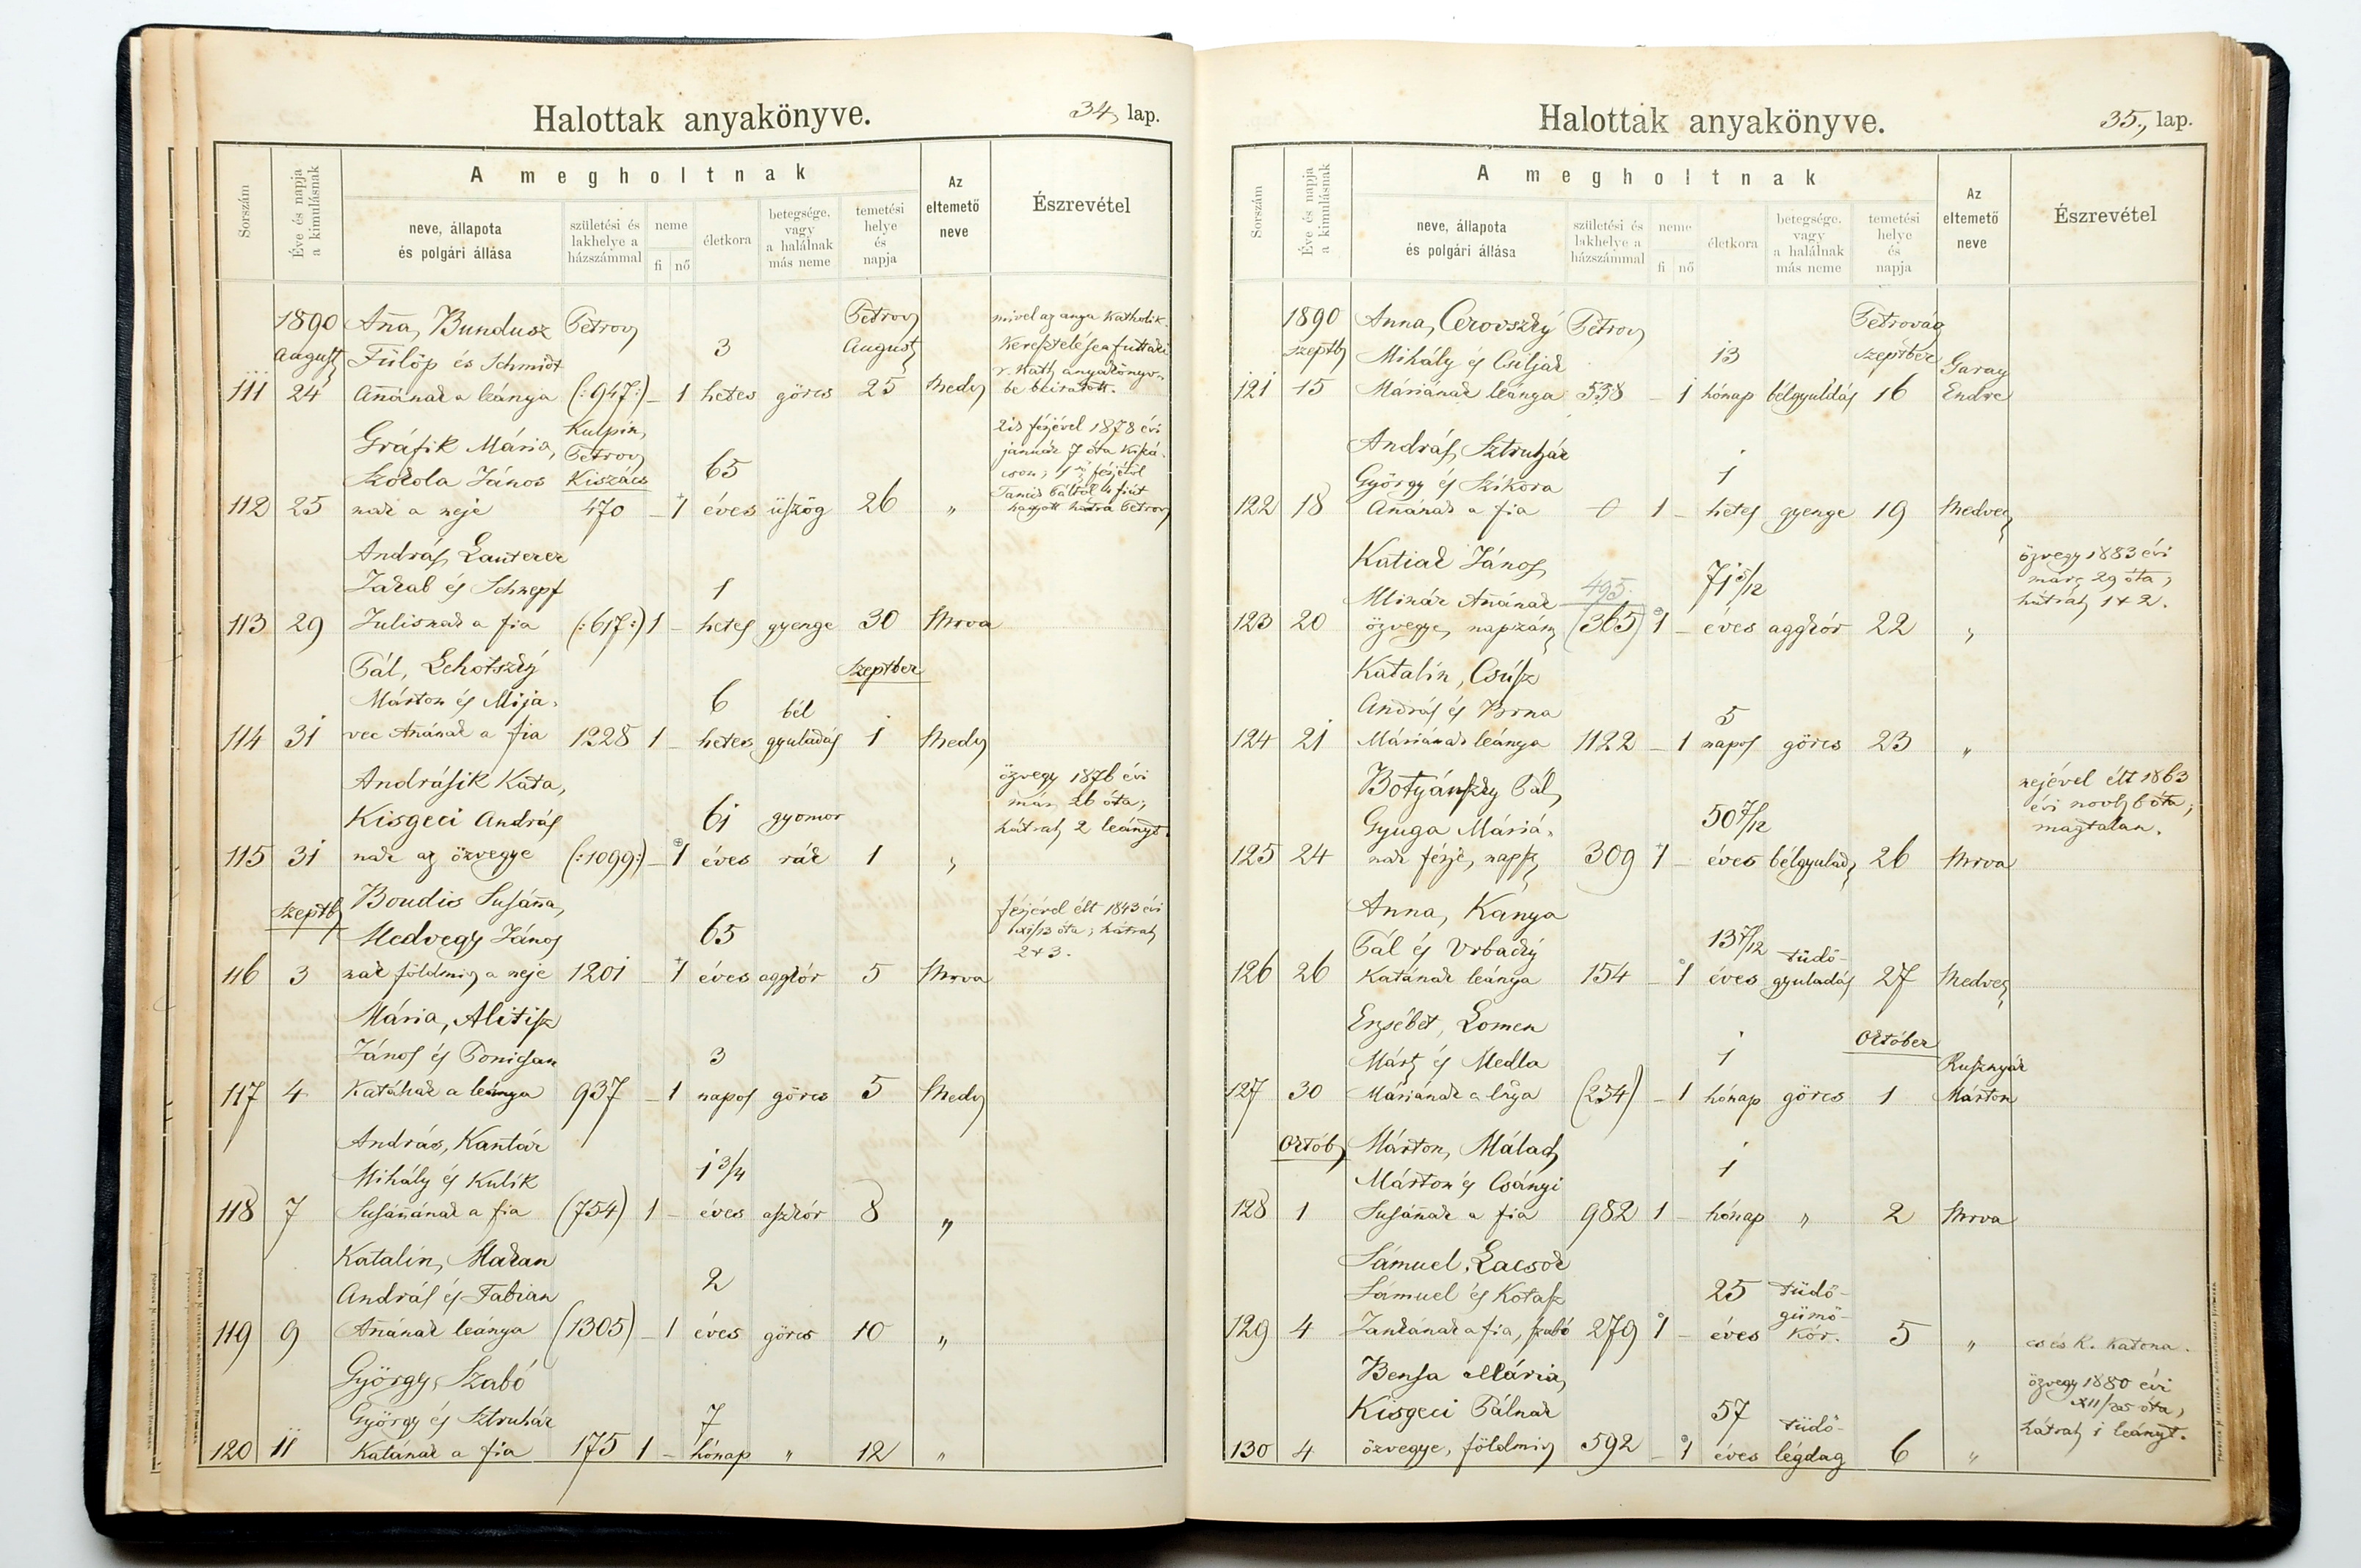 Halottak anyakönyve.
34, lap.
Sorszám
Éve és napja
a kimulásnak
A megholtnak
neve, állapota
és polgári állása
születési és
lakhelye a
házszámmal
neme
fi nő
életkora
betegsége,
vagy
a halálnak
más neme
temetési
helye
és
napja
Az
eltemető
neve
Észrevétel
1890 Aña, Bundusz Petrov Petrov mivel az anya katholik.
August Fülöp és Schmidt 3 August keresztelése a futtaki
111 24 Añának a leánya (:947:) – 1 hetes görcs 25 Medv r. kath anyakönyv-
be beiratott.
Gráfik Mária, Kulpin, Petrov 2id férjével 1878 évi
Szokola János Kiszács 65 január 7 óta Kiszá-
112 25 nak a neje 470 – 1 éves üszög 26 „
hagyott hátra Petrov
András, Lauterer
Jakab és Schnepf 1
113 29 Julisnak a fia (:617:) 1 – hetes gyenge 30 Mrva
Pál, Lehotszký Szeptber
Márton és Mija- 6 bél
114 31 vec Añának a fia 1228 1 – hetes gyuladás 1 Medv
Andrásik Kata, özvegy 1876 évi
Kisgeci András 61 gyomor már. 26 óta;
115 31 nak az özvegye (:1099:) – 1 éves rák 1 „ hátrah 2 leányt.
Szeptb Boudis Susáña, férjével élt 1843 évi
Medvegy János 65 XI/13 óta; hátrah
116 3 nak földmiv a neje 1201 – 1 éves aggkór 5 Mrva 2+3.
Mária, Alitisz
János és Ponicsan 3
117 4 Katának a leánya 937 – 1 napos görcs 5 Medv
András, Kantár
Mihály és Kulik 1 3/4
118 7 Susáñának a fia (754) 1 – éves aszkór 8 „
Katalin, Makan
András és Fabian 2
119 9 Añának leánya (1305) – 1 éves görcs 10 „
György, Szabó
György és Sztruhár 7
120 11 Katának a fia 175 1 – hónap „ 12 „
Halottak anyakönyve.
35., lap.
Sorszám
Éve és napja
a kimulásnak
A megholtnak
neve, állapota
és polgári állása
születési és
lakhelye a
házszámmal
neme
fi nő
életkora
betegsége,
vagy
a halálnak
más neme
temetési
helye
és
napja
Az
eltemető
neve
Észrevétel
1890 Anna, Cerovszký Petrov Petrovág
Szeptb Mihály és Csiljak 13 Szeptber Garay
121 15 Máriának leánya 538 – 1 hónap bélgyuldás 16 Endre
András, Sztruhár
György és Szikora 1
122 18 Añának a fia 0 1 – hetes gyenge 19 Medveg
Katiak János, özvegy 1883 évi
Mlinár Añának 495. 71 5/12 márc 29 óta;
123 20 özvegye, napszám (365) 1 – éves aggkór 22 „ hátrah 1+2.
Katalin, Csúsz
András és Brna 5
124 21 Máriának leánya 1122 – 1 napos görcs 23 „
Botyánszky Pál, nejével élt 1863
Gyuga Máriá- 50 7/12 évi novb 6 óta;
125 24 nak férje, napsz 309 1 – éves bélgyulad 26 Mrva magtalan.
Anna, Kanya
Pál és Vrbaský 13 7/12 tüdő-
126 26 Katának leánya 154 – 1 éves gyuladás 27 Medveg
Erzsébet, Lomen Október
Márt és Medla 1 Rusznyák
127 30 Máriának a lnya (254) – 1 hónap görcs 1 Márton
Októb Márton, Málach
Márton és Csányi 1
128 1 Susáñak a fia 982 1 – hónap „ 2 Mrva
Sámuel, Lacsok
Sámuel és Kotasz 25 tüdő-
gümő-
129 4 Zankának a fia, szabó 279 1 – éves kór. 5 „ cs és k. katona.
Bensa Mária, özvegy 1880 évi
Kisgeci Pálnak 57 tüdő- XII/25 óta,
130 4 özvegye, földmiv 592 – 1 éves légdag 6 „ hátrah 1 leányt.